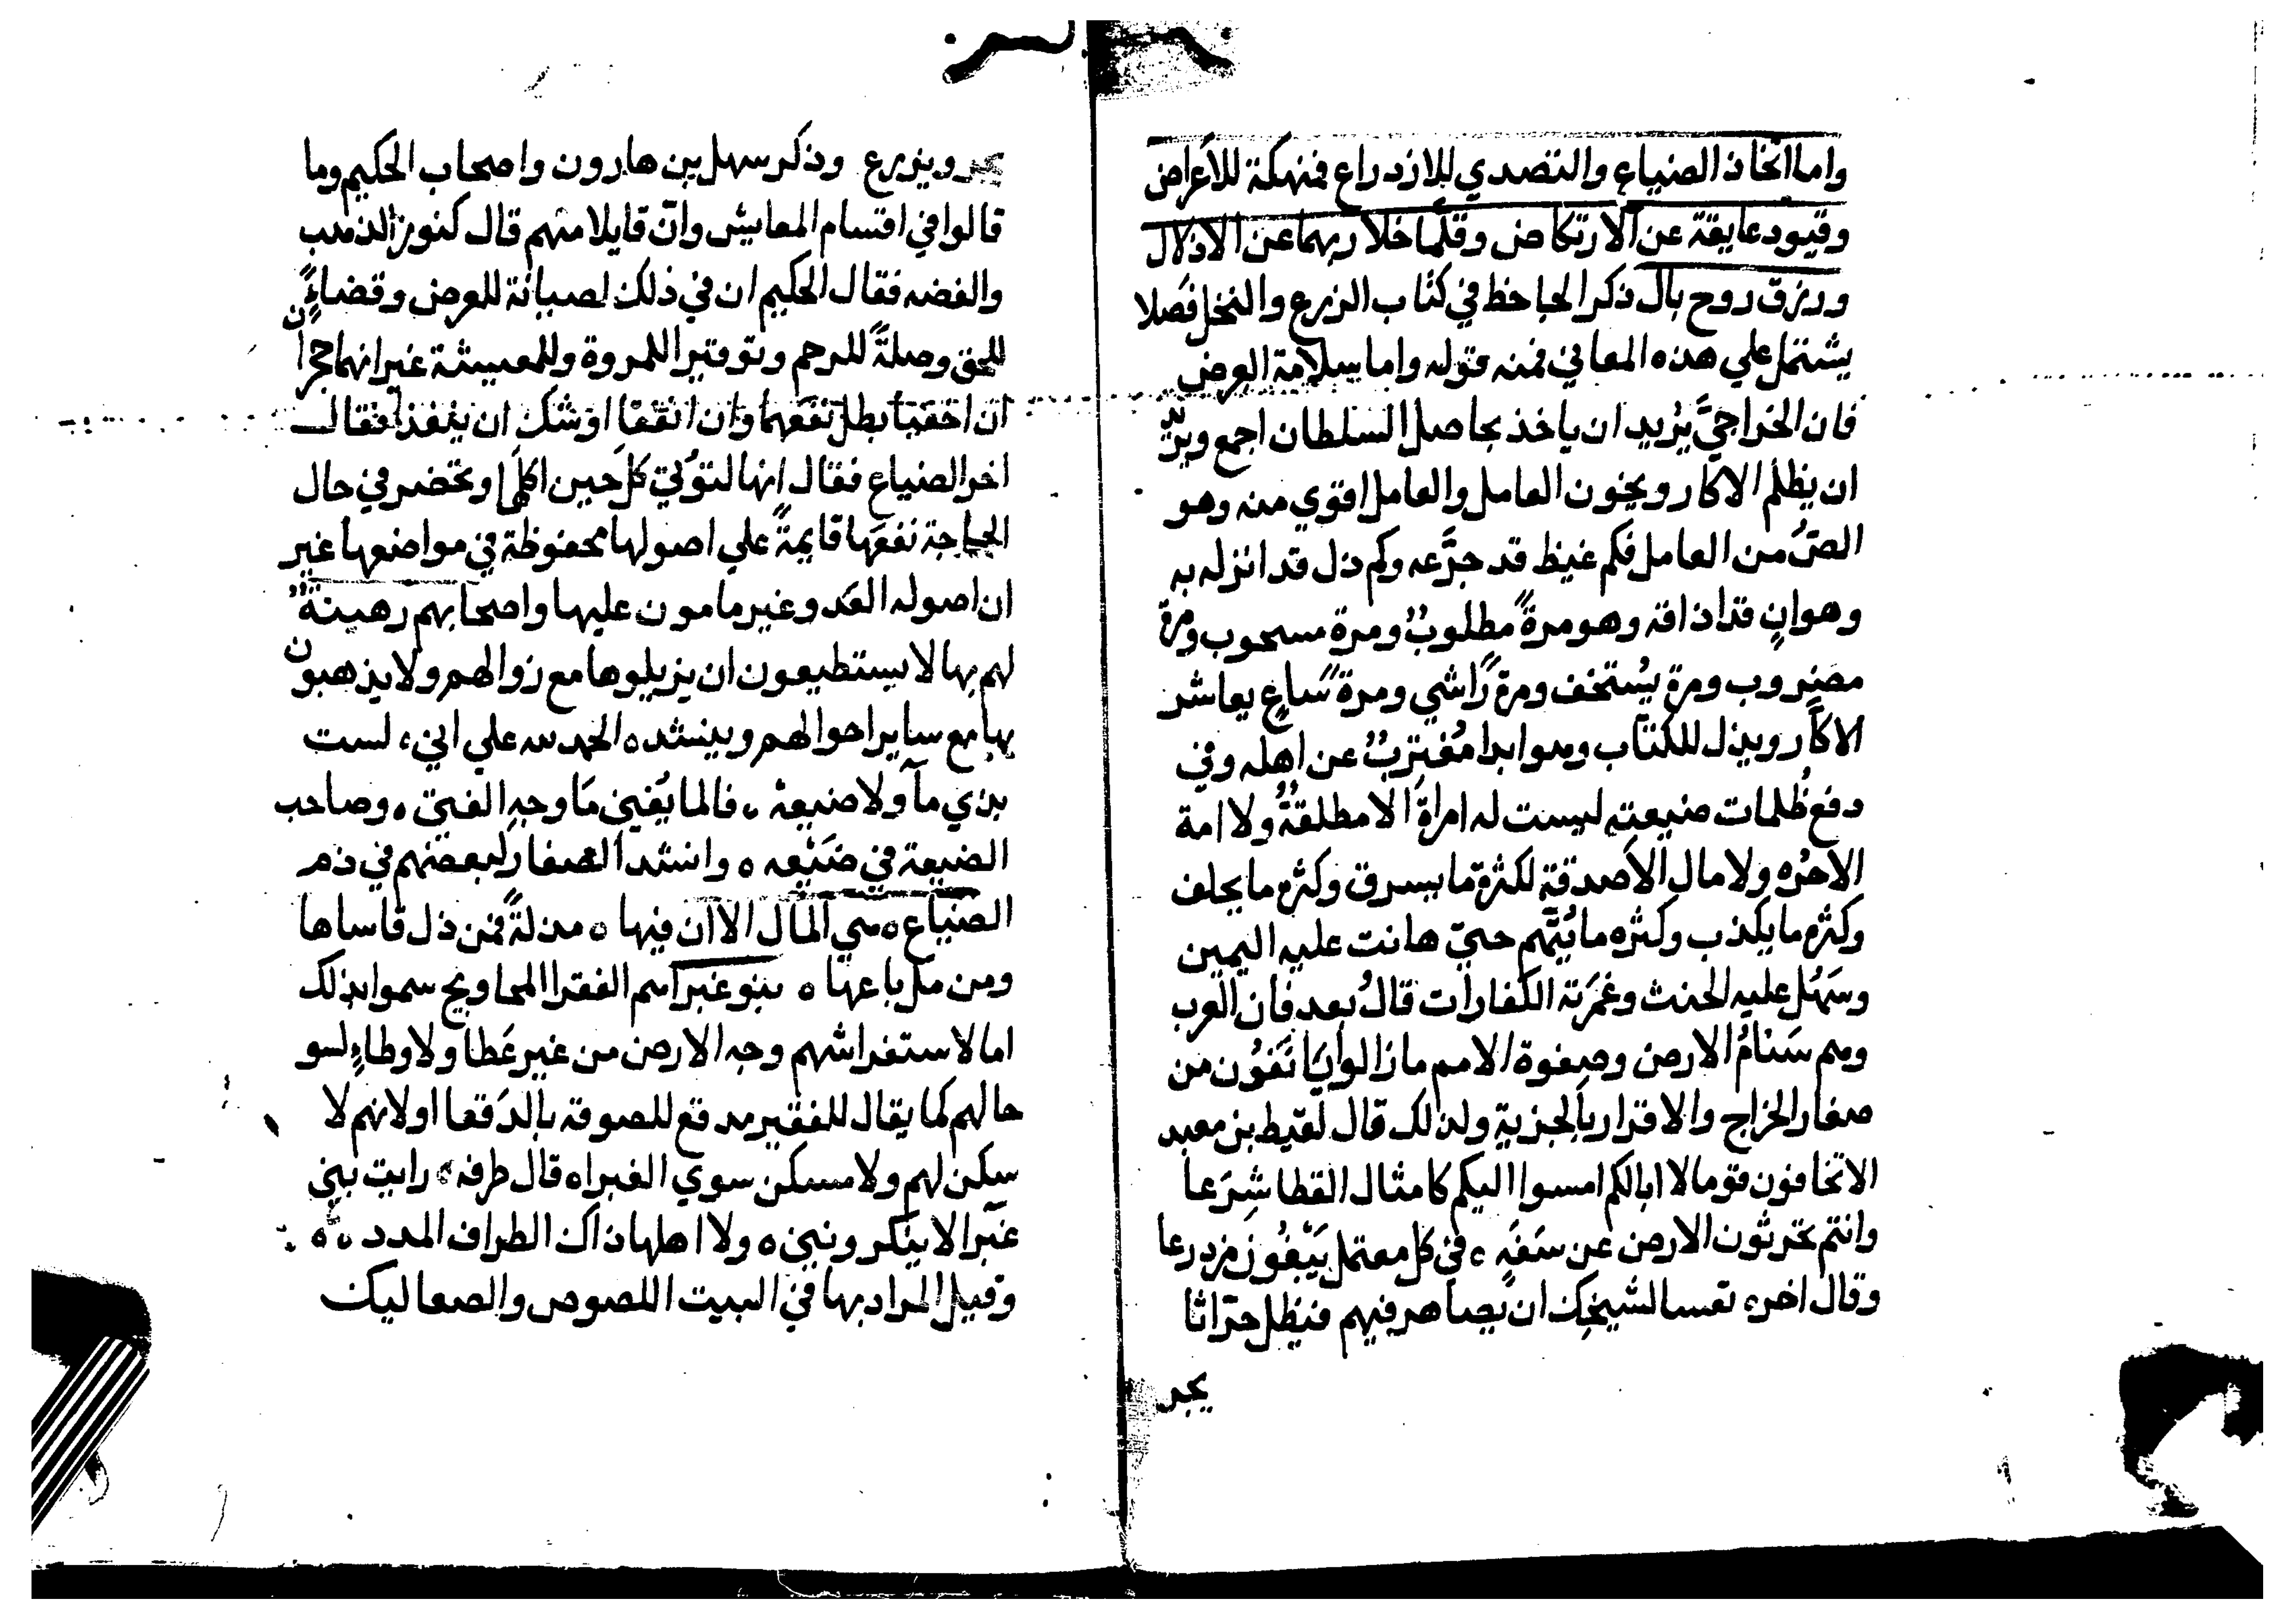 واما اتخاذ الضياع والتصدي للازدراع فمنهكة للاعراض
وقيود عايقة عن الارتكاض وقلّما خلا ربهما عن الاذلال
ورزق روح بال ذكر الجاحظ في كتاب الزرع والنخل فصلا
يشتمل علي هذه المعاني فمنه قوله واما سلامة العرض
فان الخراجيَّ يريد ان ياخذ بحاصل السلطان اجمع ويريد
ان يظلم الاكار ويخون العامل والعامل اقوي منه وهو
الصُّ من العامل فكم غيظ قد جرَّعه وكم ذل قد انزله به
وهوانٍ قد اذاقه وهو مرةً مطلوبٌ ومرة مسحوب ومرة
مضروب ومرة يُستخف ومرةً راشي ومرةً ساعٍ يعاشر
الاكّار ويذل للكتّاب وهو ابدا مُغتربٌ عن اهله وفي
دفع ظُلمات ضيعته ليست له امراةٌ الا مطلقةٌ ولا امة
الا حُره ولا مال الا صدقة لكثرة ما يسرق وكثره ما يحلف
وكثره ما يكذب وكثره ما يُتَّهم حتيّ هانت عليه اليمين
وسَهُل عليه الحنث وغمَرَته الكفارات قالُ بعد فان العرب
وهم سَنامُ الارض وصفوة الامم ما زالوا يَانَفُون من
صغار الخراج والاقرار بالجزية ولذلك قال لقيط بن معبد
الا تخافون قوما لا ابا لكم امسوا اليكم كامثال القطا شِرَعا
وانتم تحرثون الارض عن سَفَهٍ ، في كل معتمل يَبْغُون مزدرعا
وقال اخره تعسا لشيخك ان يصاهر فيهم فيظل حرّاثا
يجر
يجر ويزرع وذكر سهل بن هارون واصحاب الحكيم وما
قالوا في اقتسام المعايش وان قايلا منهم قال كنوز الذهب
والفضه فقال الحكيم ان في ذلك لصيانة للعرض وقضاءً
للحق وصلةً للرحم وتوفيرا للمروة وللمعيشة غير انهما حجران
ان اختبيا بطل نفعهما وان انفقا اوشك ان ينفذا فقال
اخر الضياع فقال انها لتؤتي كل حين اكلها وتحضر في حال
الحاجة نفعها قايمةً علي اصولها محفوظة في مواضعها غير
ان اصوله العدو غير مامون عليها واصحابهم رهينةٌ
لهم بها لا يستطيعون ان يزيلوها مع زوالهم ولا يذهبون
بها مع ساير احوالهم وينشده الحمد لله علي انني ، لست
بذي مآ ولا ضيعة ، فالما يُفني مَا وجهِ الفتي ، وصاحب
الضيعة في ضَيْعه ه وانشد الصفار لبعضهم في ذم
الضياع ه هي المال الا ان فيها ه مذلةً فمن ذل قاساها
ومن مل باعها ه بنو غبرا اسم الفقرا المحاويج سموا بذلك
اما لاستفراشهم وجه الارض من غير غَطا ولا وطاءٍ لسو
حالهم كما يقال للفقير مدقع للصوقه بالدَقعا او لانهم لا
سكن لهم ولا مسكن سوي الغبراه قال طرفه ، رايت بني
غبرا لا ينكرونني ه ولا اهلهاذاك الطراف الممدد ، ه
وقيل المراد بها في البيت اللصوص والصعاليك